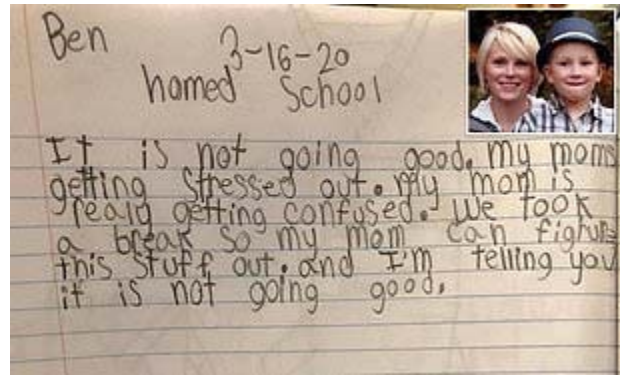 Ben
3-16-20
homed School
It is not going good. my moms
getting stressed out. My mom is
realy getting confused. we took
a break so my mom can fighure
this stuff out. and I'm telling you
it is not going good.